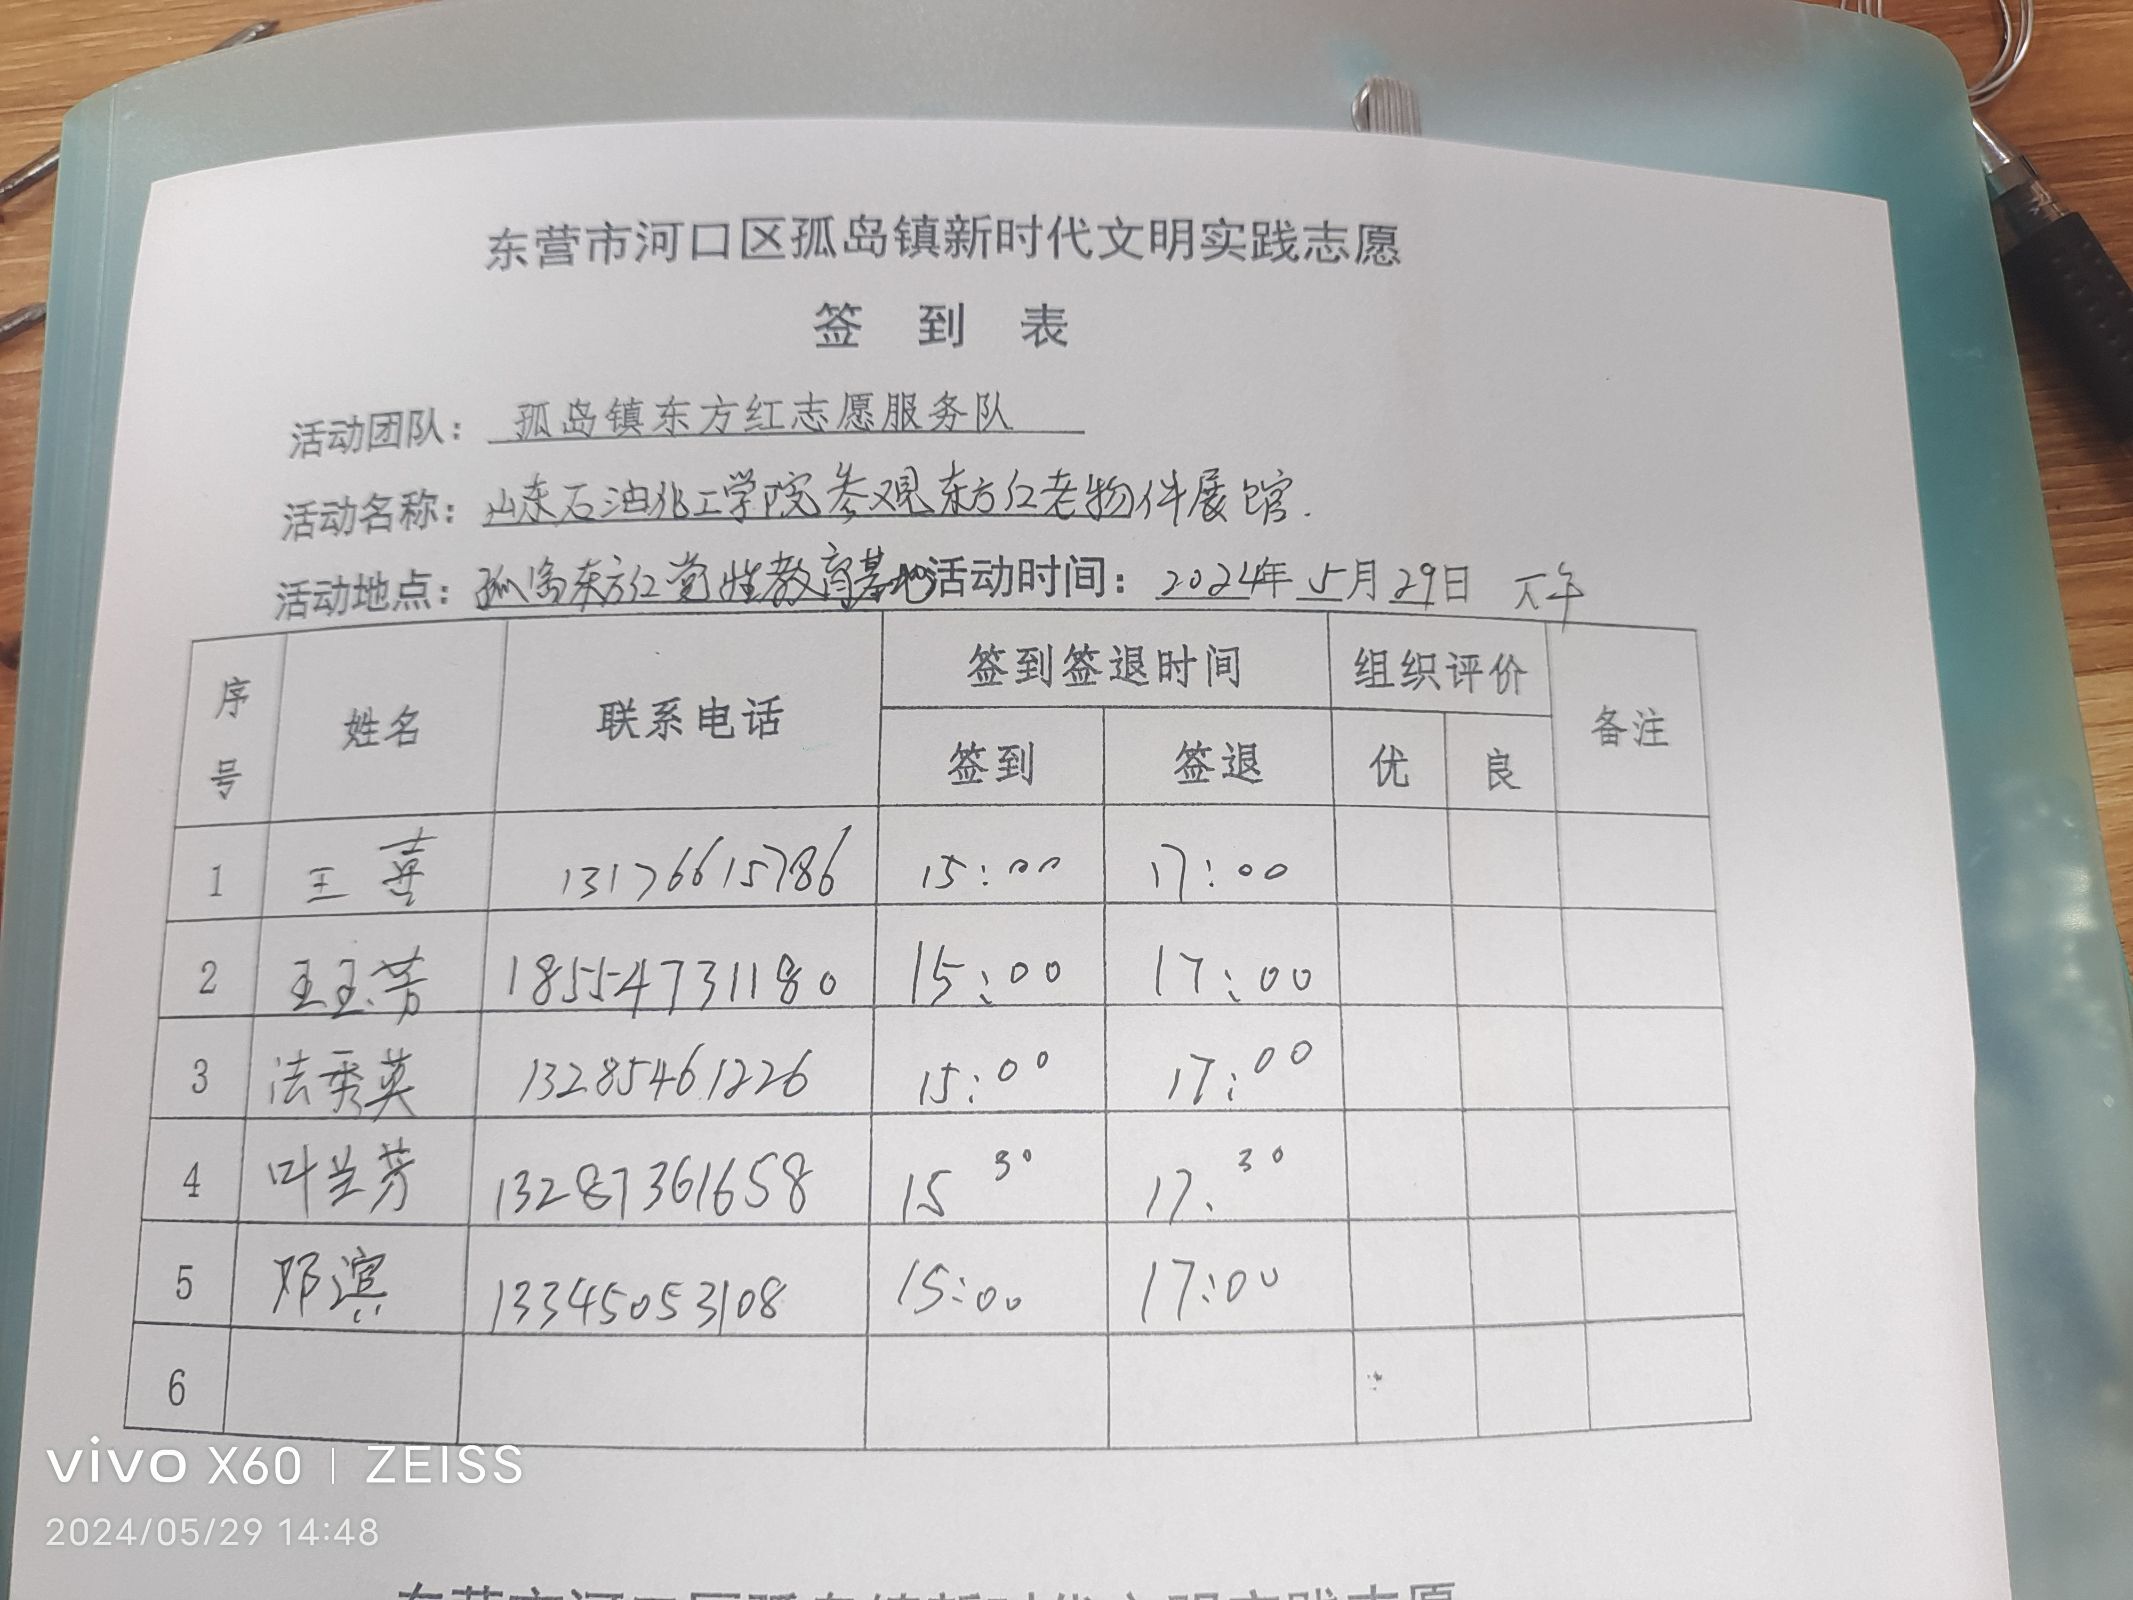 东营市河口区孤岛镇新时代文明实践志愿
签 到 表
活动团队： 孤岛镇东方红志愿服务队
活动名称： 山东石油化工学院参观东方红老物件展馆.
活动地点： 孤岛东方红党性教育基地 活动时间： 2024年 5月 29日 下午
序号 姓名 联系电话 签到签退时间 组织评价 备注
签到 签退 优 良
1 王喜 13176615786 15:00 17:00
2 王玉芳 18554731180 15:00 17:00
3 法秀英 13285461226 15:00 17:00
4 叶兰芳 13287361658 15 30 17.30
5 邓滨 13345053108 15:00 17:00
6
vivo X60 | ZEISS
2024/05/29 14:48
东营市河口区孤岛镇新时代文明实践志愿